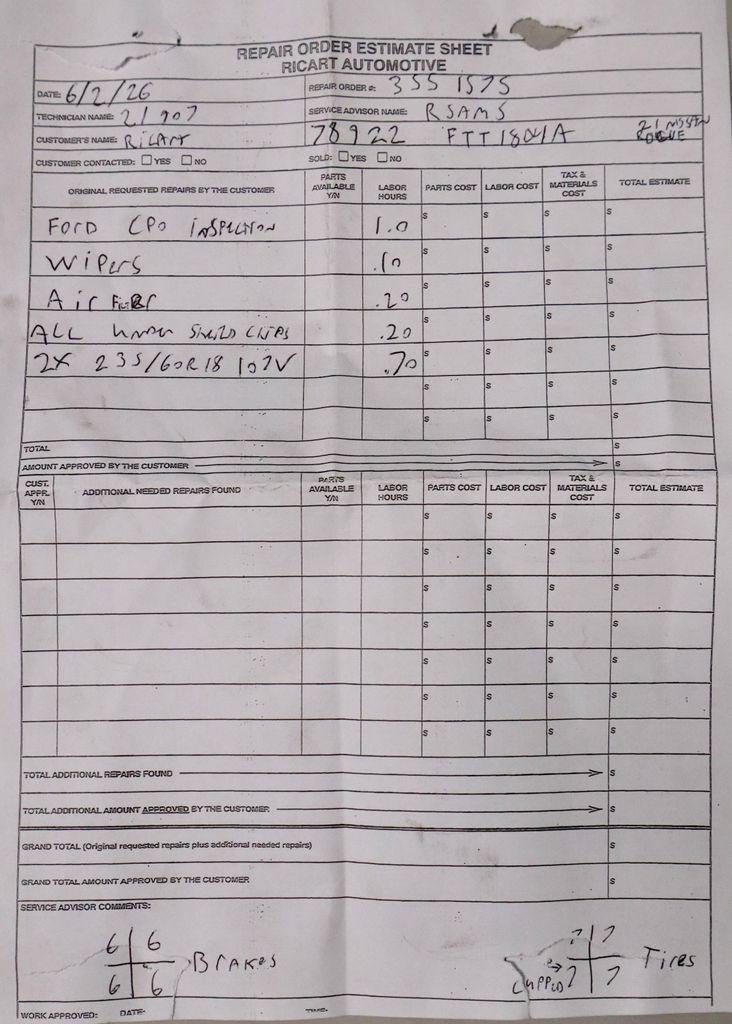 REPAIR ORDER ESTIMATE SHEET
RICART AUTOMOTIVE
DATE: 6/2/26 REPAIR ORDER #: 355 1575
TECHNICIAN NAME: 21907 SERVICE ADVISOR NAME: RSAMS
CUSTOMER'S NAME: RICART 78922 FTT1804A 21 NISSAN
ROGUE
CUSTOMER CONTACTED: ☐ YES ☐ NO SOLD: ☐ YES ☐ NO
ORIGINAL REQUESTED REPAIRS BY THE CUSTOMER PARTS AVAILABLE Y/N LABOR HOURS PARTS COST LABOR COST TAX & MATERIALS COST TOTAL ESTIMATE
FORD CPO INSPECTION 1.0 $ $ $ $
WIPERS .10 $ $ $ $
Air FILTER .20 $ $ $ $
ALL UNDER SHIELD CLIPS .20 $ $ $ $
2X 235/60R18 107V .70 $ $ $ $
$ $ $ $
$ $ $ $
TOTAL $
AMOUNT APPROVED BY THE CUSTOMER $
CUST. APPR. Y/N ADDITIONAL NEEDED REPAIRS FOUND PARTS AVAILABLE Y/N LABOR HOURS PARTS COST LABOR COST TAX & MATERIALS COST TOTAL ESTIMATE
$ $ $ $
$ $ $ $
$ $ $ $
$ $ $ $
$ $ $ $
$ $ $ $
$ $ $ $
TOTAL ADDITIONAL REPAIRS FOUND $
TOTAL ADDITIONAL AMOUNT APPROVED BY THE CUSTOMER $
GRAND TOTAL (Original requested repairs plus additional needed repairs) $
GRAND TOTAL AMOUNT APPROVED BY THE CUSTOMER $
SERVICE ADVISOR COMMENTS:
6 6 7 7
BRAKES Tires
6 6 CUPPED 7 7
WORK APPROVED: DATE: TIME: